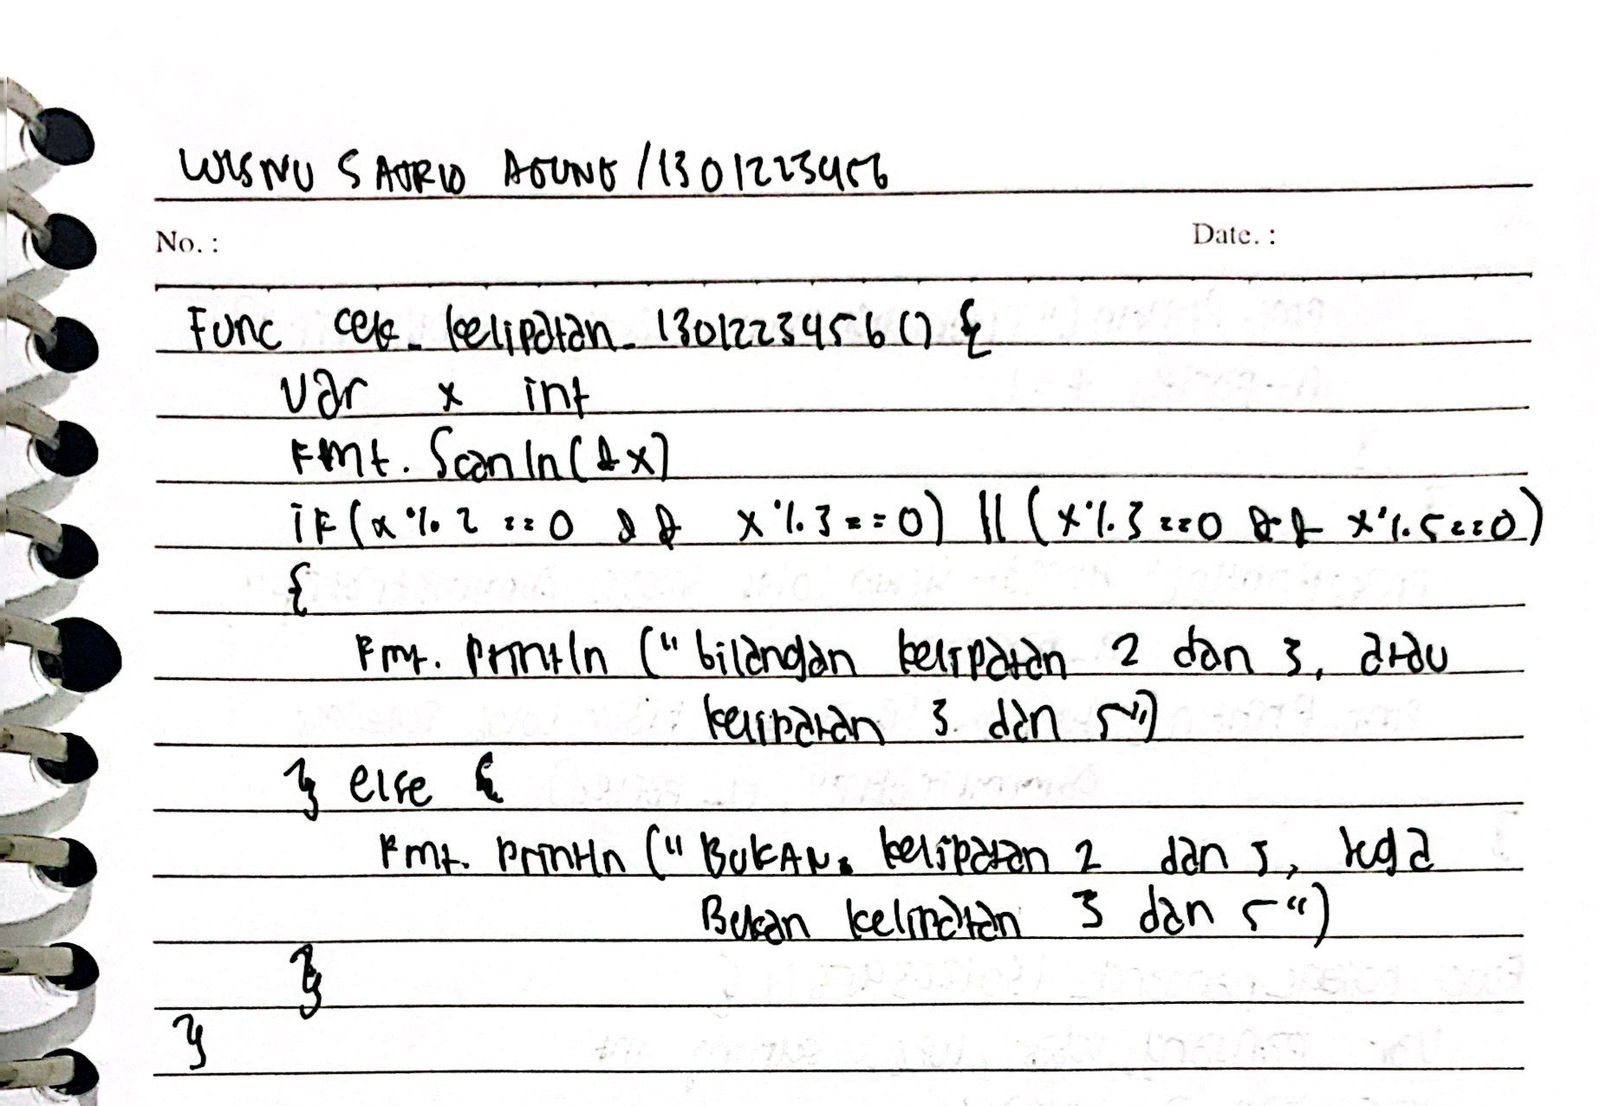 WISNU SATRIO AGUNG / 1301223456
No. :
Date. :
Func cek_kelipatan_1301223456() {
var x int
Fmt. Scanln(&x)
if (x % 2 == 0 && x % 3 == 0) || (x % 3 == 0 && x % 5 == 0)
{
Fmt. Println ("bilangan kelipatan 2 dan 3, atau
kelipatan 3 dan 5")
} else {
Fmt. Println ("BUKAN kelipatan 2 dan 3, juga
Bukan kelipatan 3 dan 5")
}
}